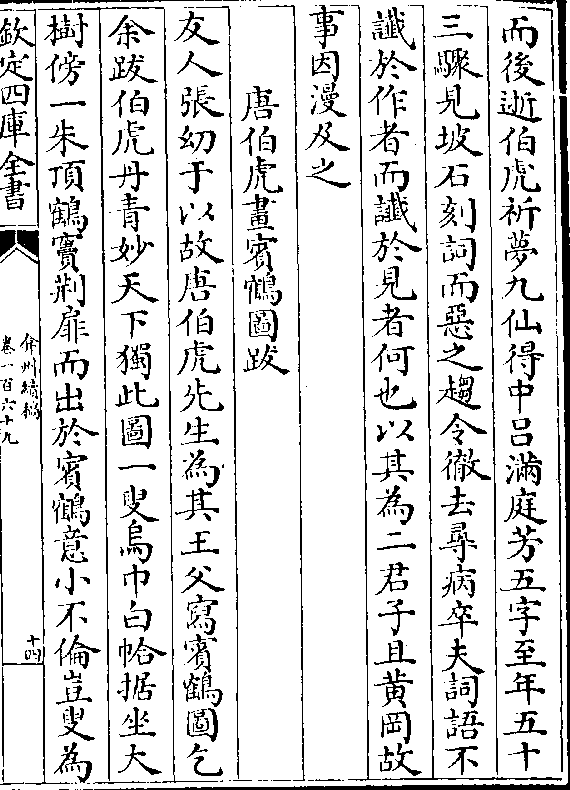 而後逝伯虎祈夢九仙得中呂滿庭芳五字至年五十
三驟見坡石刻詞而惡之趣令徹去尋病卒夫詞語不
讖於作者而讖於見者何也以其為二君子且黄岡故
事因漫及之
唐伯虎畫賓鶴圖跋
友人張幼于以故唐伯虎先生為其王父寫賓鶴圖乞
余跋伯虎丹青妙天下獨此圖一叟烏巾白帢据坐大
樹傍一朱頂鶴竇荆扉而出於賓鶴意小不倫豈叟為
欽定四庫全書
弇州續稿
卷一百六十九
十四